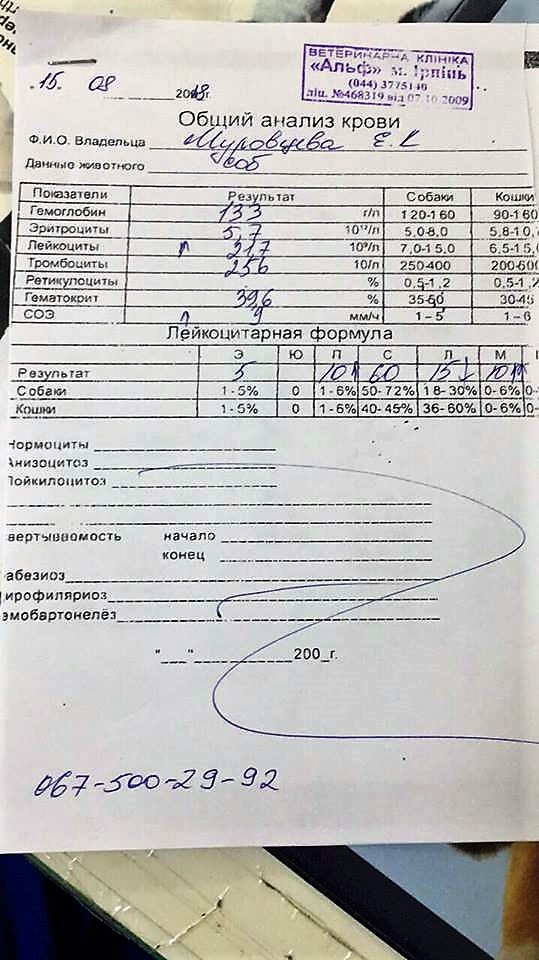 ВЕТЕРИНАРНА КЛІНІКА
«Альф» м. Ірпінь
(044) 3775140
ліц. №468319 від 07.10.2009
15. 08 2018г.
Общий анализ крови
Ф.И.О. Владельца Муровцева Е.
Данные животного соб
Показатели Результат Собаки Кошки
Гемоглобин 133 г/л 120-160 90-160
Эритроциты 5,7 10¹²/л 5,0-8,0 5,8-10,
Лейкоциты ↑ 21,7 10⁹/л 7,0-15,0 6,5-15,
Тромбоциты 256 10/л 250-400 200-600
Ретикулоциты % 0,5-1,2 0,5-1,
Гематокрит 39,6 % 35-50 30-45
СОЭ ↑ 9 мм/ч 1-5 1-6
Лейкоцитарная формула
Э Ю П С Л М
Результат 5 10↑ 60 15↓ 10↑
Собаки 1-5% 0 1-6% 50-72% 18-30% 0-6% 0-
Кошки 1-5% 0 1-6% 40-45% 36-60% 0-6% 0-
Нормоциты
Анизоцитоз
Пойкилоцитоз
вертываемость начало
конец
абезиоз
ирофиляриоз
емобартонелёз
"__"__________200_г.
067-500-29-92